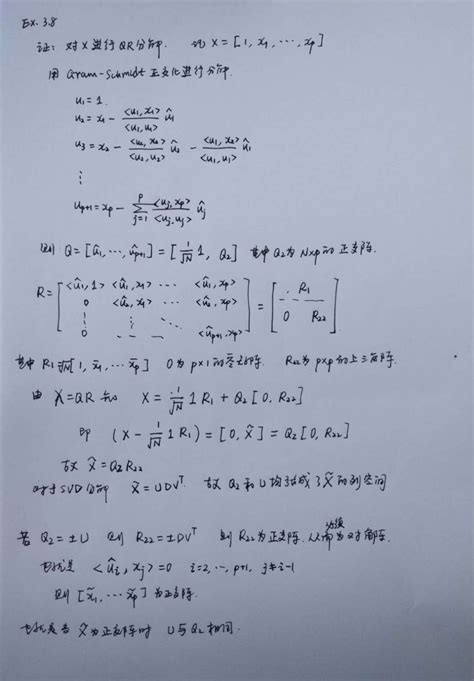 Ex. 3.8
证: 对X进行QR分解. 记 X = [1, x₁, ⋯, xₚ]
用 Gram-Schmidt 正交化进行分解.
u₁ = 1
u₂ = x₁ - <u₁, x₁>/<u₁, u₁> û₁
u₃ = x₂ - <u₂, x₂>/<u₂, u₂> û₂ - <u₁, x₂>/<u₁, u₁> û₁
⋮
uₚ₊₁ = xₚ - Σⱼ₌₁ᵖ <uⱼ, xₚ>/<uⱼ, uⱼ> ûⱼ
则 Q = [û₁, ⋯, ûₚ₊₁] = [1/√N 1, Q₂] 其中 Q₂为 N×p 的正交阵.
R = [<û₁, 1> <û₁, x₁> ⋯ <û₁, xₚ>; 0 <û₂, x₁> ⋯ <û₂, xₚ>; ⋮ ; 0 ⋯ <ûₚ₊₁, xₚ>] = [R₁; 0 R₂₂]
其中 R₁ = √N [1, x̄₁, ⋯ x̄ₚ] 0为 p×1 的零矩阵. R₂₂为 p×p 的上三角阵.
由 X = QR 知 X = 1/√N 1 R₁ + Q₂ [0, R₂₂]
即 (X - 1/√N 1 R₁) = [0, X̃] = Q₂ [0, R₂₂]
故 X̃ = Q₂ R₂₂
对于SVD分解 X̃ = UDVᵀ. 故 Q₂ 和 U 均张成了 X̃ 的列空间
若 Q₂ = ±U 则 R₂₂ = ±DVᵀ 则 R₂₂ 为正交阵. 从而为对角阵.
也就是 <ûᵢ, xⱼ> = 0 i=2, ⋯, p+1, j≠i-1
则 [x̃₁, ⋯ x̃ₚ] 为正交阵.
也就是当 X̃ 为正交阵时 U 与 Q₂ 相同.